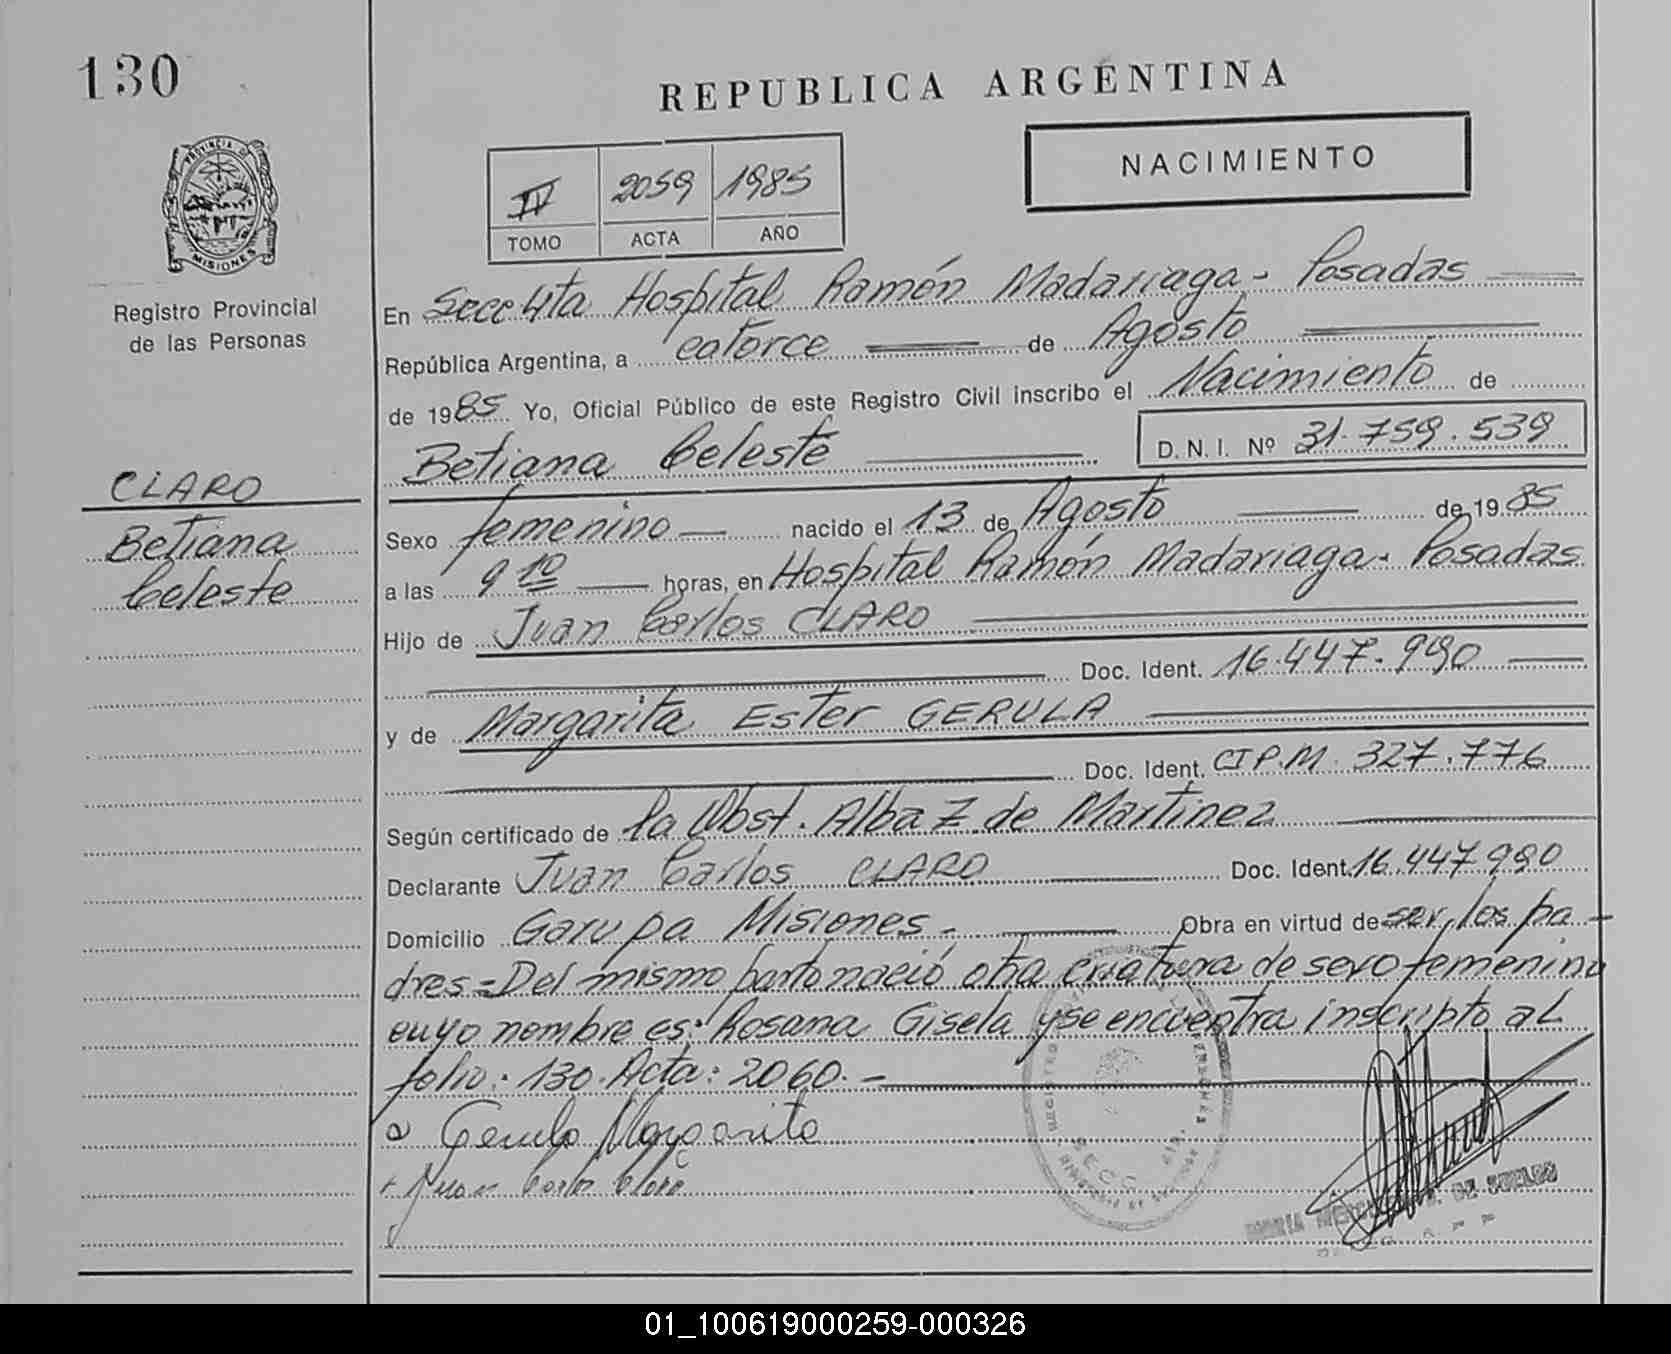 130
REPUBLICA ARGENTINA
NACIMIENTO
IV 2059 1985
TOMO ACTA AÑO
PROVINCIA DE
MISIONES
Registro Provincial
de las Personas
CLARO
Betiana
Celeste
En Secc 4ta Hospital Ramón Madariaga - Posadas
República Argentina, a catorce de Agosto
de 1985 Yo, Oficial Público de este Registro Civil inscribo el Nacimiento de
Betiana Celeste D. N. I. Nº 31.759.539
Sexo femenino nacido el 13 de Agosto de 1985
a las 9 10 horas, en Hospital Ramón Madariaga - Posadas
Hijo de Juan Carlos CLARO
Doc. Ident. 16.447.990
y de Margarita Ester GERULA
Doc. Ident. CIP.M. 327.776
Según certificado de la Obst. Alba Z. de Martinez
Declarante Juan Carlos CLARO Doc. Ident. 16.447.990
Domicilio Garupa Misiones - Obra en virtud de ser los pa-
dres = Del mismo parto nació otra criatura de sexo femenino
cuyo nombre es: Rosana Gisela y se encuentra inscripto al
folio: 130. Acta: 2060. -
Gerula Margarita
Juan Carlos Claro
MARIA DE SUELDO
01_100619000259-000326